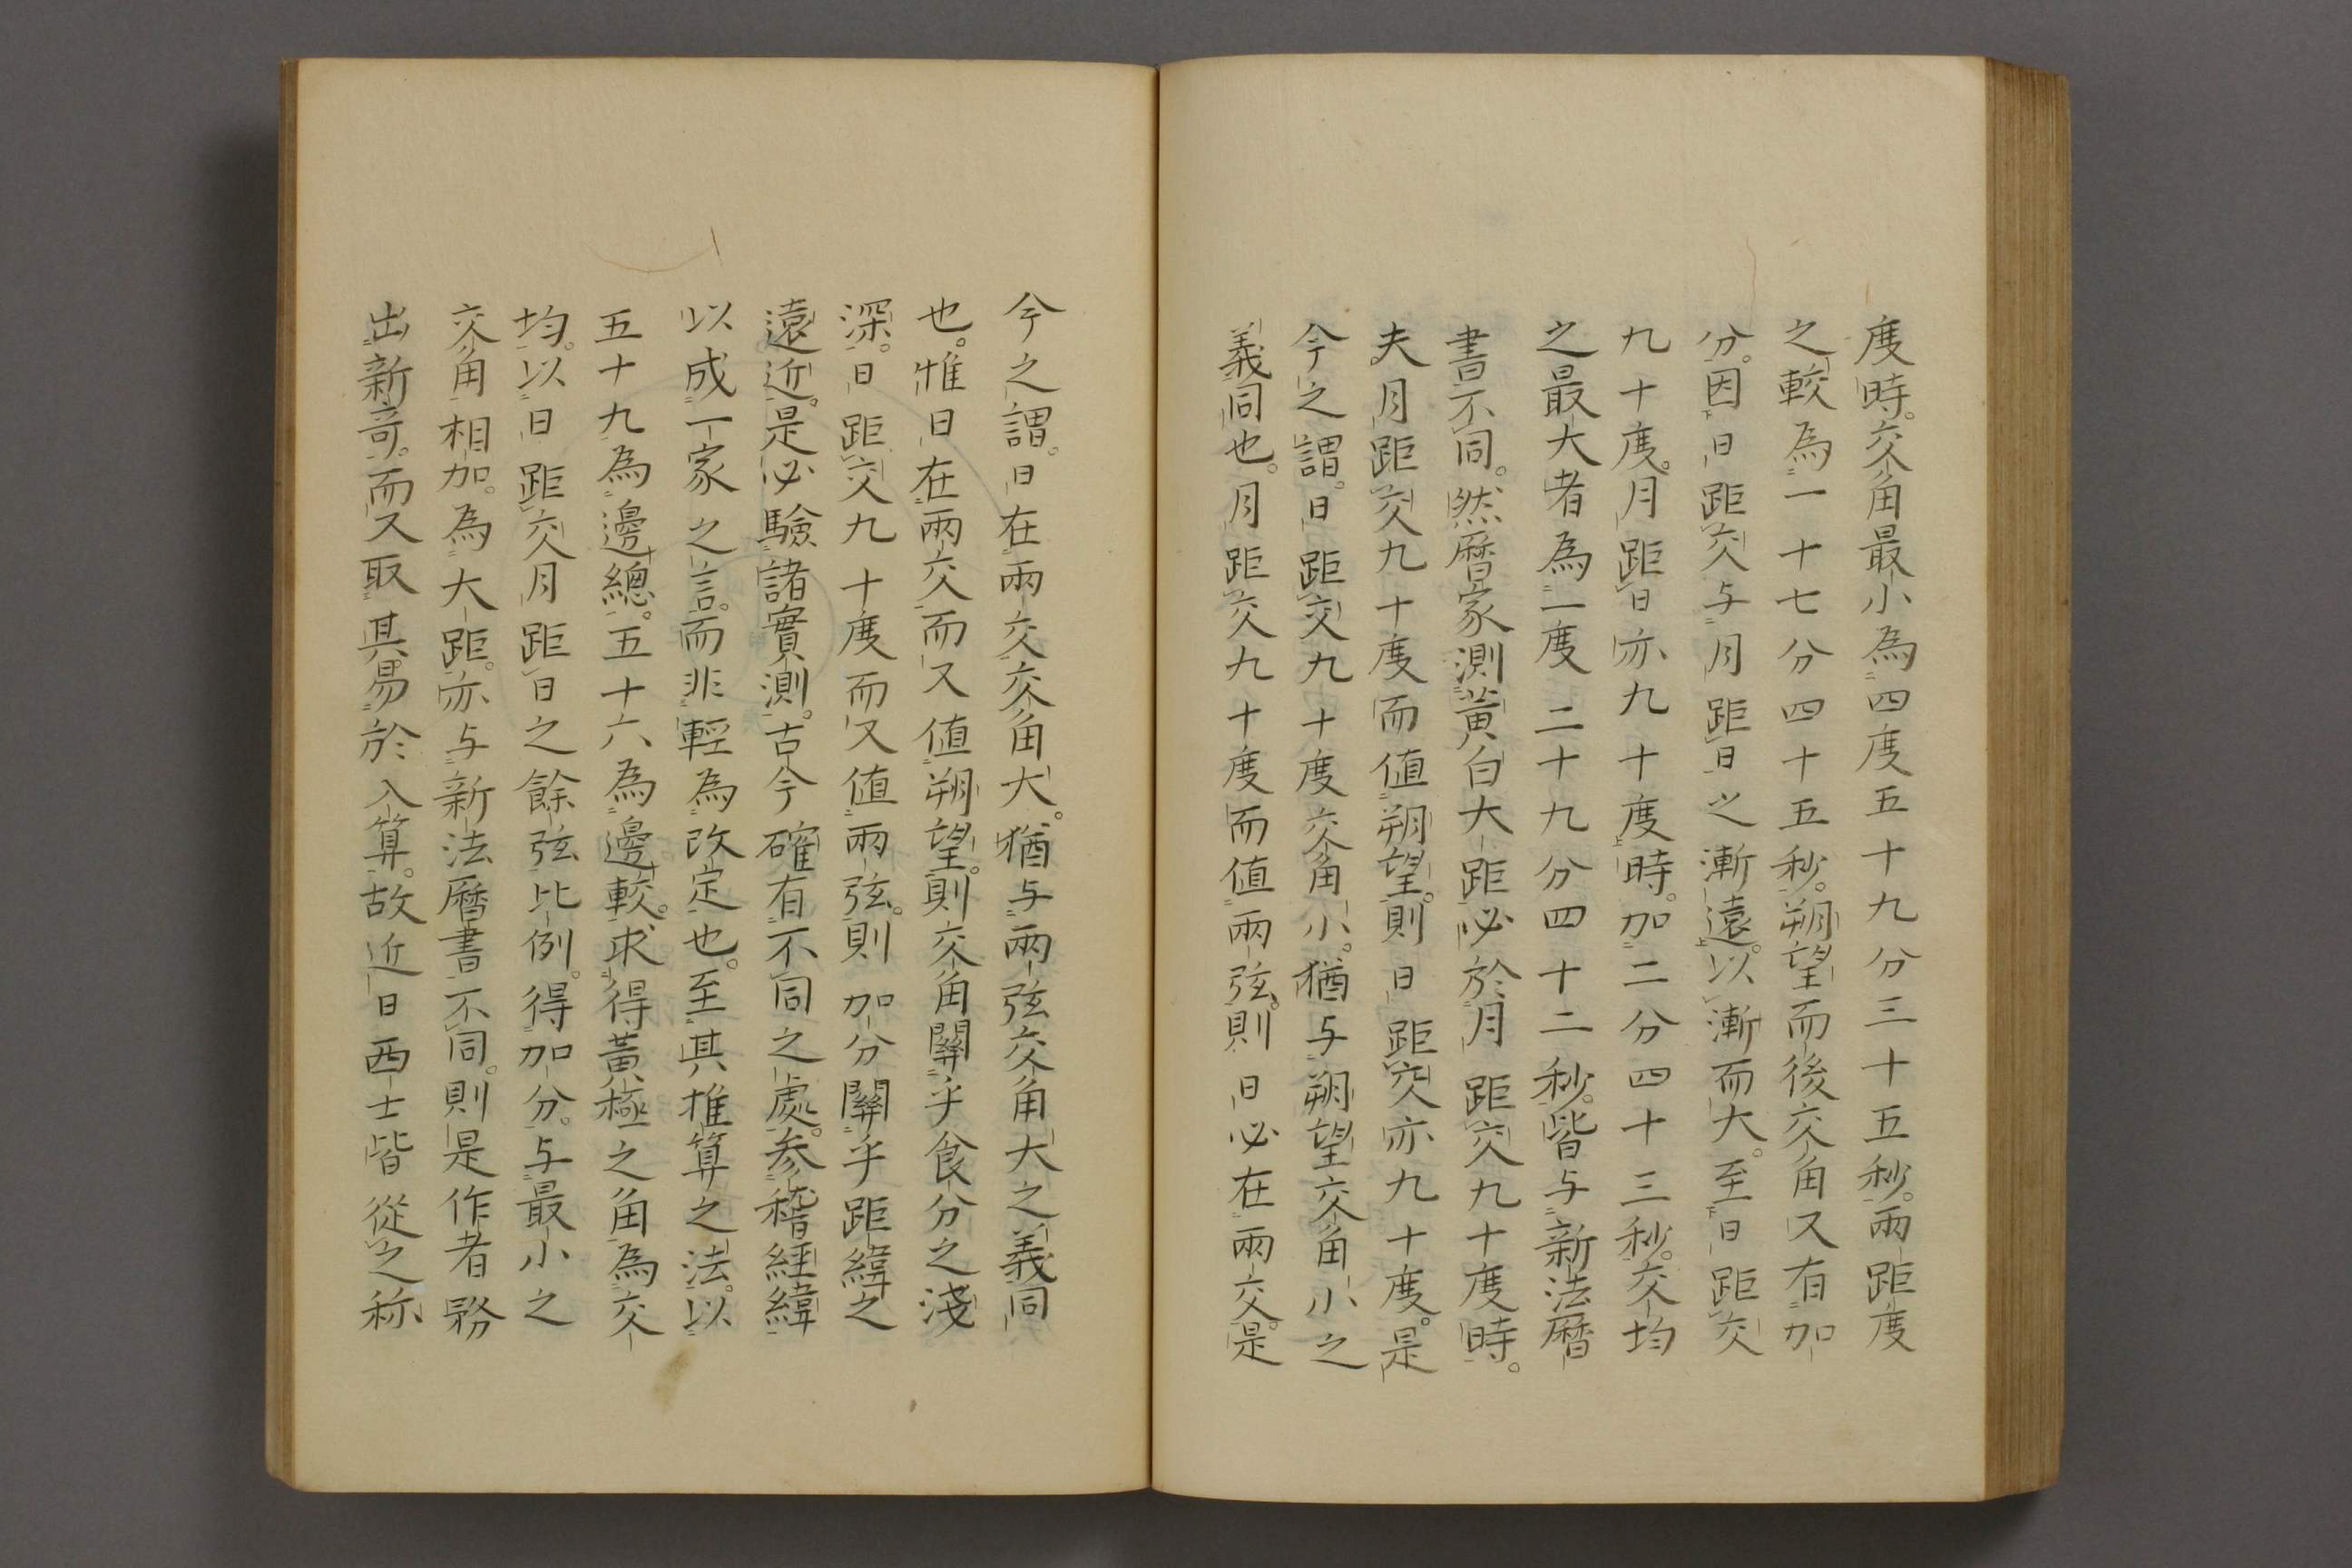 度時。交角最小為四度五十九分三十五秒。兩距度
之較為一十七分四十五秒。朔望而後交角又有加
分。因日距交与月距日之漸遠。以漸而大。至日距交
九十度。月距日亦九十度時。加二分四十三秒。交均
之最大者為一度二十九分四十二秒。皆与新法曆
書不同。然曆家測黃白大距必於月距交九十度時。
夫月距交九十度而值朔望。則日距交亦九十度。是
今之謂。日距交九十度交角小。猶与朔望交角小之
義同也。月距交九十度而值兩弦。則日必在兩交。是
今之謂。日在兩交交角大。猶与兩弦交角大之義同
也。惟日在兩交而又值朔望。則交角關乎食分之淺
深。日距交九十度而又值兩弦。則加分關乎距緯之
遠近。是必驗諸實測。古今確有不同之處。参稽經緯
以成一家之言。而非輕為改定也。至其推算之法。以
五十九為邊總。五十六為邊較。求得黃極之角為交
均。以日距交月距日之餘弦比例。得加分。与最小之
交角相加。為大距。亦与新法曆書不同。則是作者務
出新竒。而又取其易於入算。故近日西士皆從之称